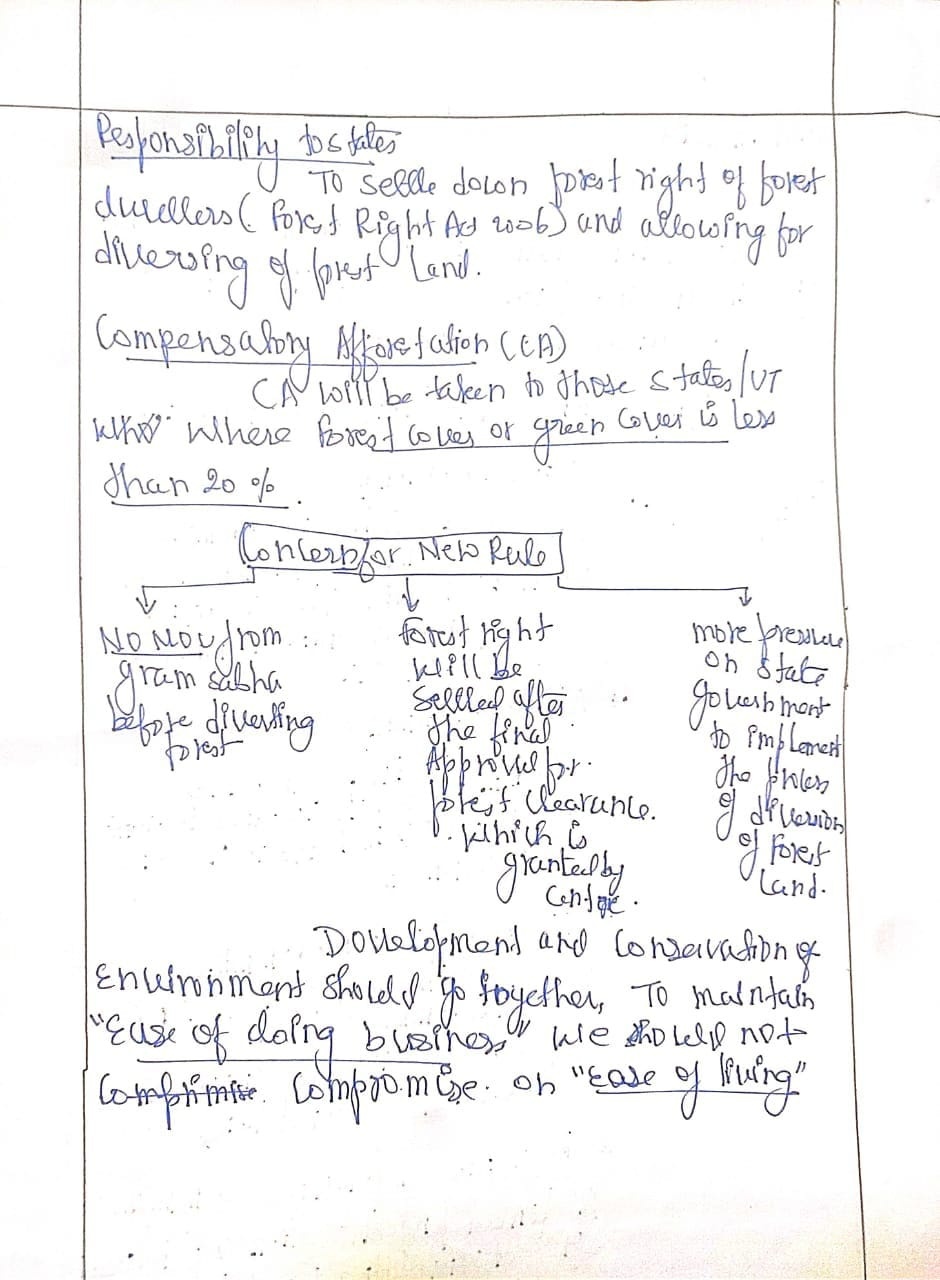 Responsibility to states
To settle down forest right of forest
dwellers (Forest Right Act 2006) and allowing for
diversing of forest Land.
Compensatory Afforetation (CA)
CA will be taken to those states/UT
Where forest cover or green cover is less
than 20 %.
Concern for New Rule
NO NOU from
gram sabha
before diverting
forest
forest right
will be
settled after
the final
Approval for
forest clearance.
which is
granted by
Centre.
more pressure
on state
government
to implement
the process
of diversion
of Forest
Land.
Development and Conservation of
Environment should go together, To maintain
"Ease of doing business" we should not
compromise on "ease of living"